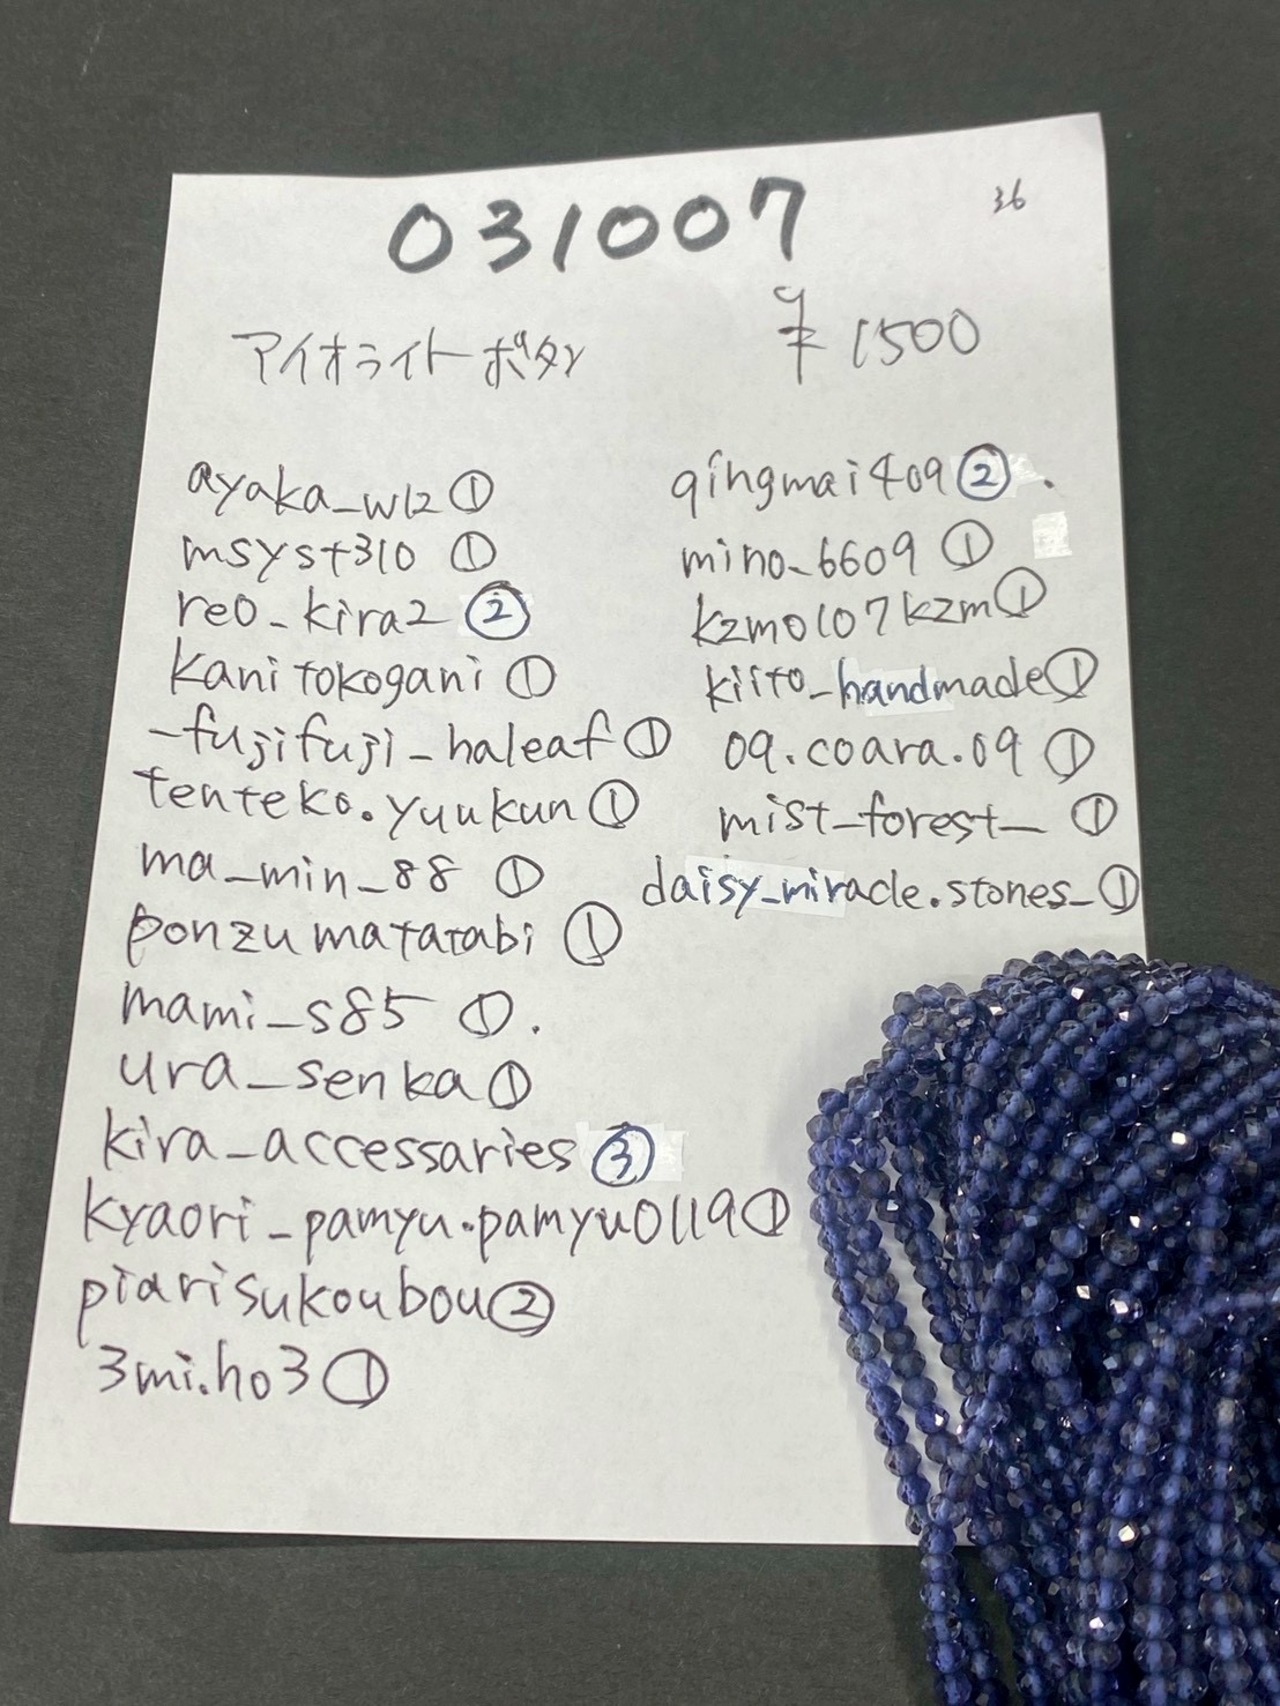 031007
36
アイオライト ボタン
¥1500
ayaka_w12 ①
msyst310 ①
reo_kira2 ②
kanitokogani ①
_fujifuji_haleaf ①
tenteko.yuukun ①
ma_min_88 ①
ponzumatatabi ①
mami_s85 ①.
ura_senka ①
kira_accessaries ③
kyaori_pamyu.pamyu0119 ①
piarisukoubou ②
3mi.ho3 ①
qingmai409 ② .
mino_6609 ①
kzm0107kzm ①
kiito_handmade ①
09.coara.09 ①
mist_forest_ ①
daisy_miracle.stones_ ①